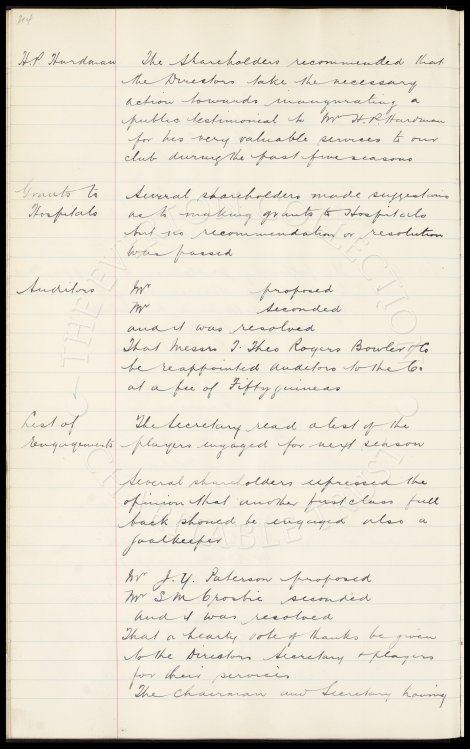 214
H.P. Hardman The Shareholders recommended that
the Directors take the necessary
action towards inaugurating a
public testimonial to Mr H.P. Hardman
for his very valuable services to our
club during the past five seasons
Grants to Several shareholders made suggestions
Hospitals as to making grants to Hospitals
but no recommendation or resolution
was passed
Auditors Mr proposed
Mr seconded
and it was resolved
That Messrs T. Theo Rogers Bowler & Co
be reappointed Auditors to the Co
at a fee of Fifty guineas
List of The Secretary read a list of the
Engagements players engaged for next season
Several shareholders expressed the
opinion that another first class full
back should be engaged also a
goalkeeper
Mr J. Y. Paterson proposed
Mr S M Crosbie seconded
and it was resolved
That a hearty vote of thanks be given
to the Directors Secretary & players
for their services
The Chairman and Secretary having